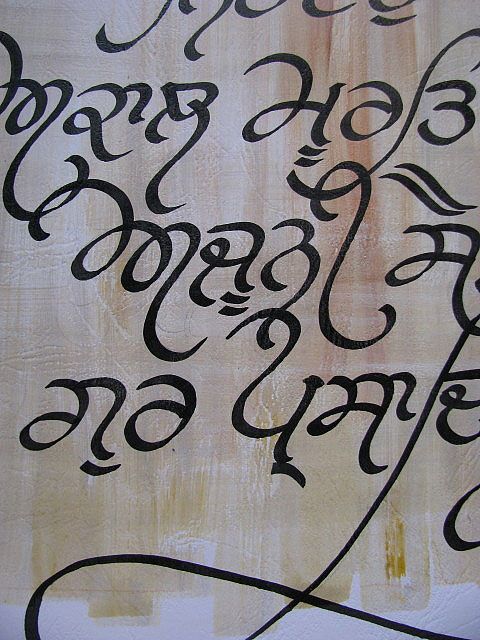 ਅਕਾਲ ਮੂਰਤਿ
ਅਜੂਨੀ ਸੈ
ਗੁਰ ਪ੍ਰਸਾਦਿ